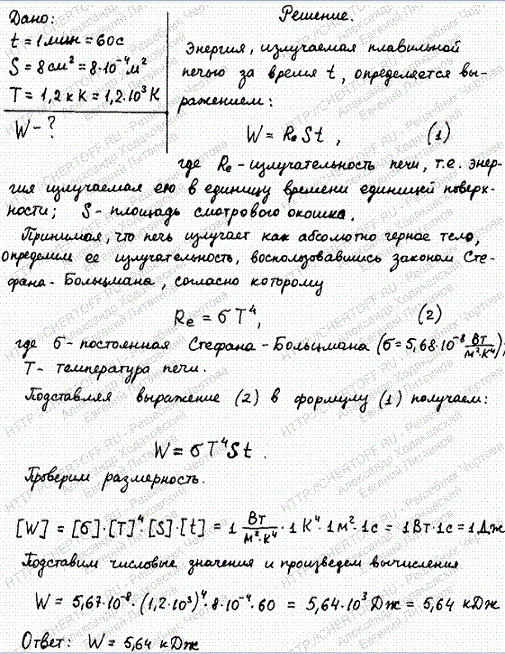 Дано:
t = 1 мин = 60 с
S = 8 см² = 8·10⁻⁴ м²
T = 1,2 кК = 1,2·10³ К
W - ?
Решение.
Энергия, излучаемая плавильной
печью за время t, определяется вы-
ражением:
W = Re S t , (1)
где Re - излучательность печи, т.е. энер-
гия излучаемая ею в единицу времени единицей поверх-
ности; S - площадь смотрового окошка.
Принимая, что печь излучает как абсолютно черное тело,
определим ее излучательность, воспользовавшись законом Сте-
фана - Больцмана, согласно которому
Re = σ T⁴, (2)
где σ - постоянная Стефана - Больцмана (σ = 5,68·10⁻⁸ Вт/м²·К⁴);
T - температура печи.
Подставляя выражение (2) в формулу (1) получаем:
W = σ T⁴ S t .
Проверим размерность.
[W] = [σ]·[T]⁴·[S]·[t] = 1 Вт/м²·К⁴ · 1 К⁴ · 1 м² · 1 с = 1 Вт·1 с = 1 Дж
Подставим числовые значения и произведем вычисления
W = 5,67·10⁻⁸·(1,2·10³)⁴·8·10⁻⁴·60 = 5,64·10³ Дж = 5,64 кДж
Ответ: W = 5,64 кДж
HTTP://CHERTOFF.RU - Решебник Чертова
Александр Ходаковский
Евгений Литвинов